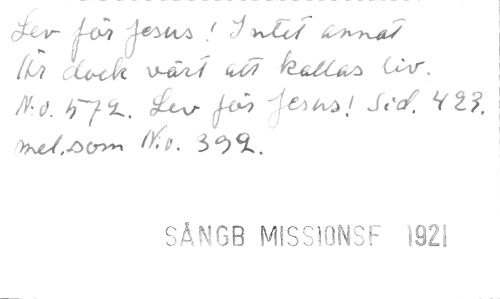 Lev för Jesus! Intet annat
Är dock värt att kallas liv.
N:o. 572. Lev för Jesus! Sid. 423.
mel. som N:o. 392.
SÅNGB MISSIONSF 1921